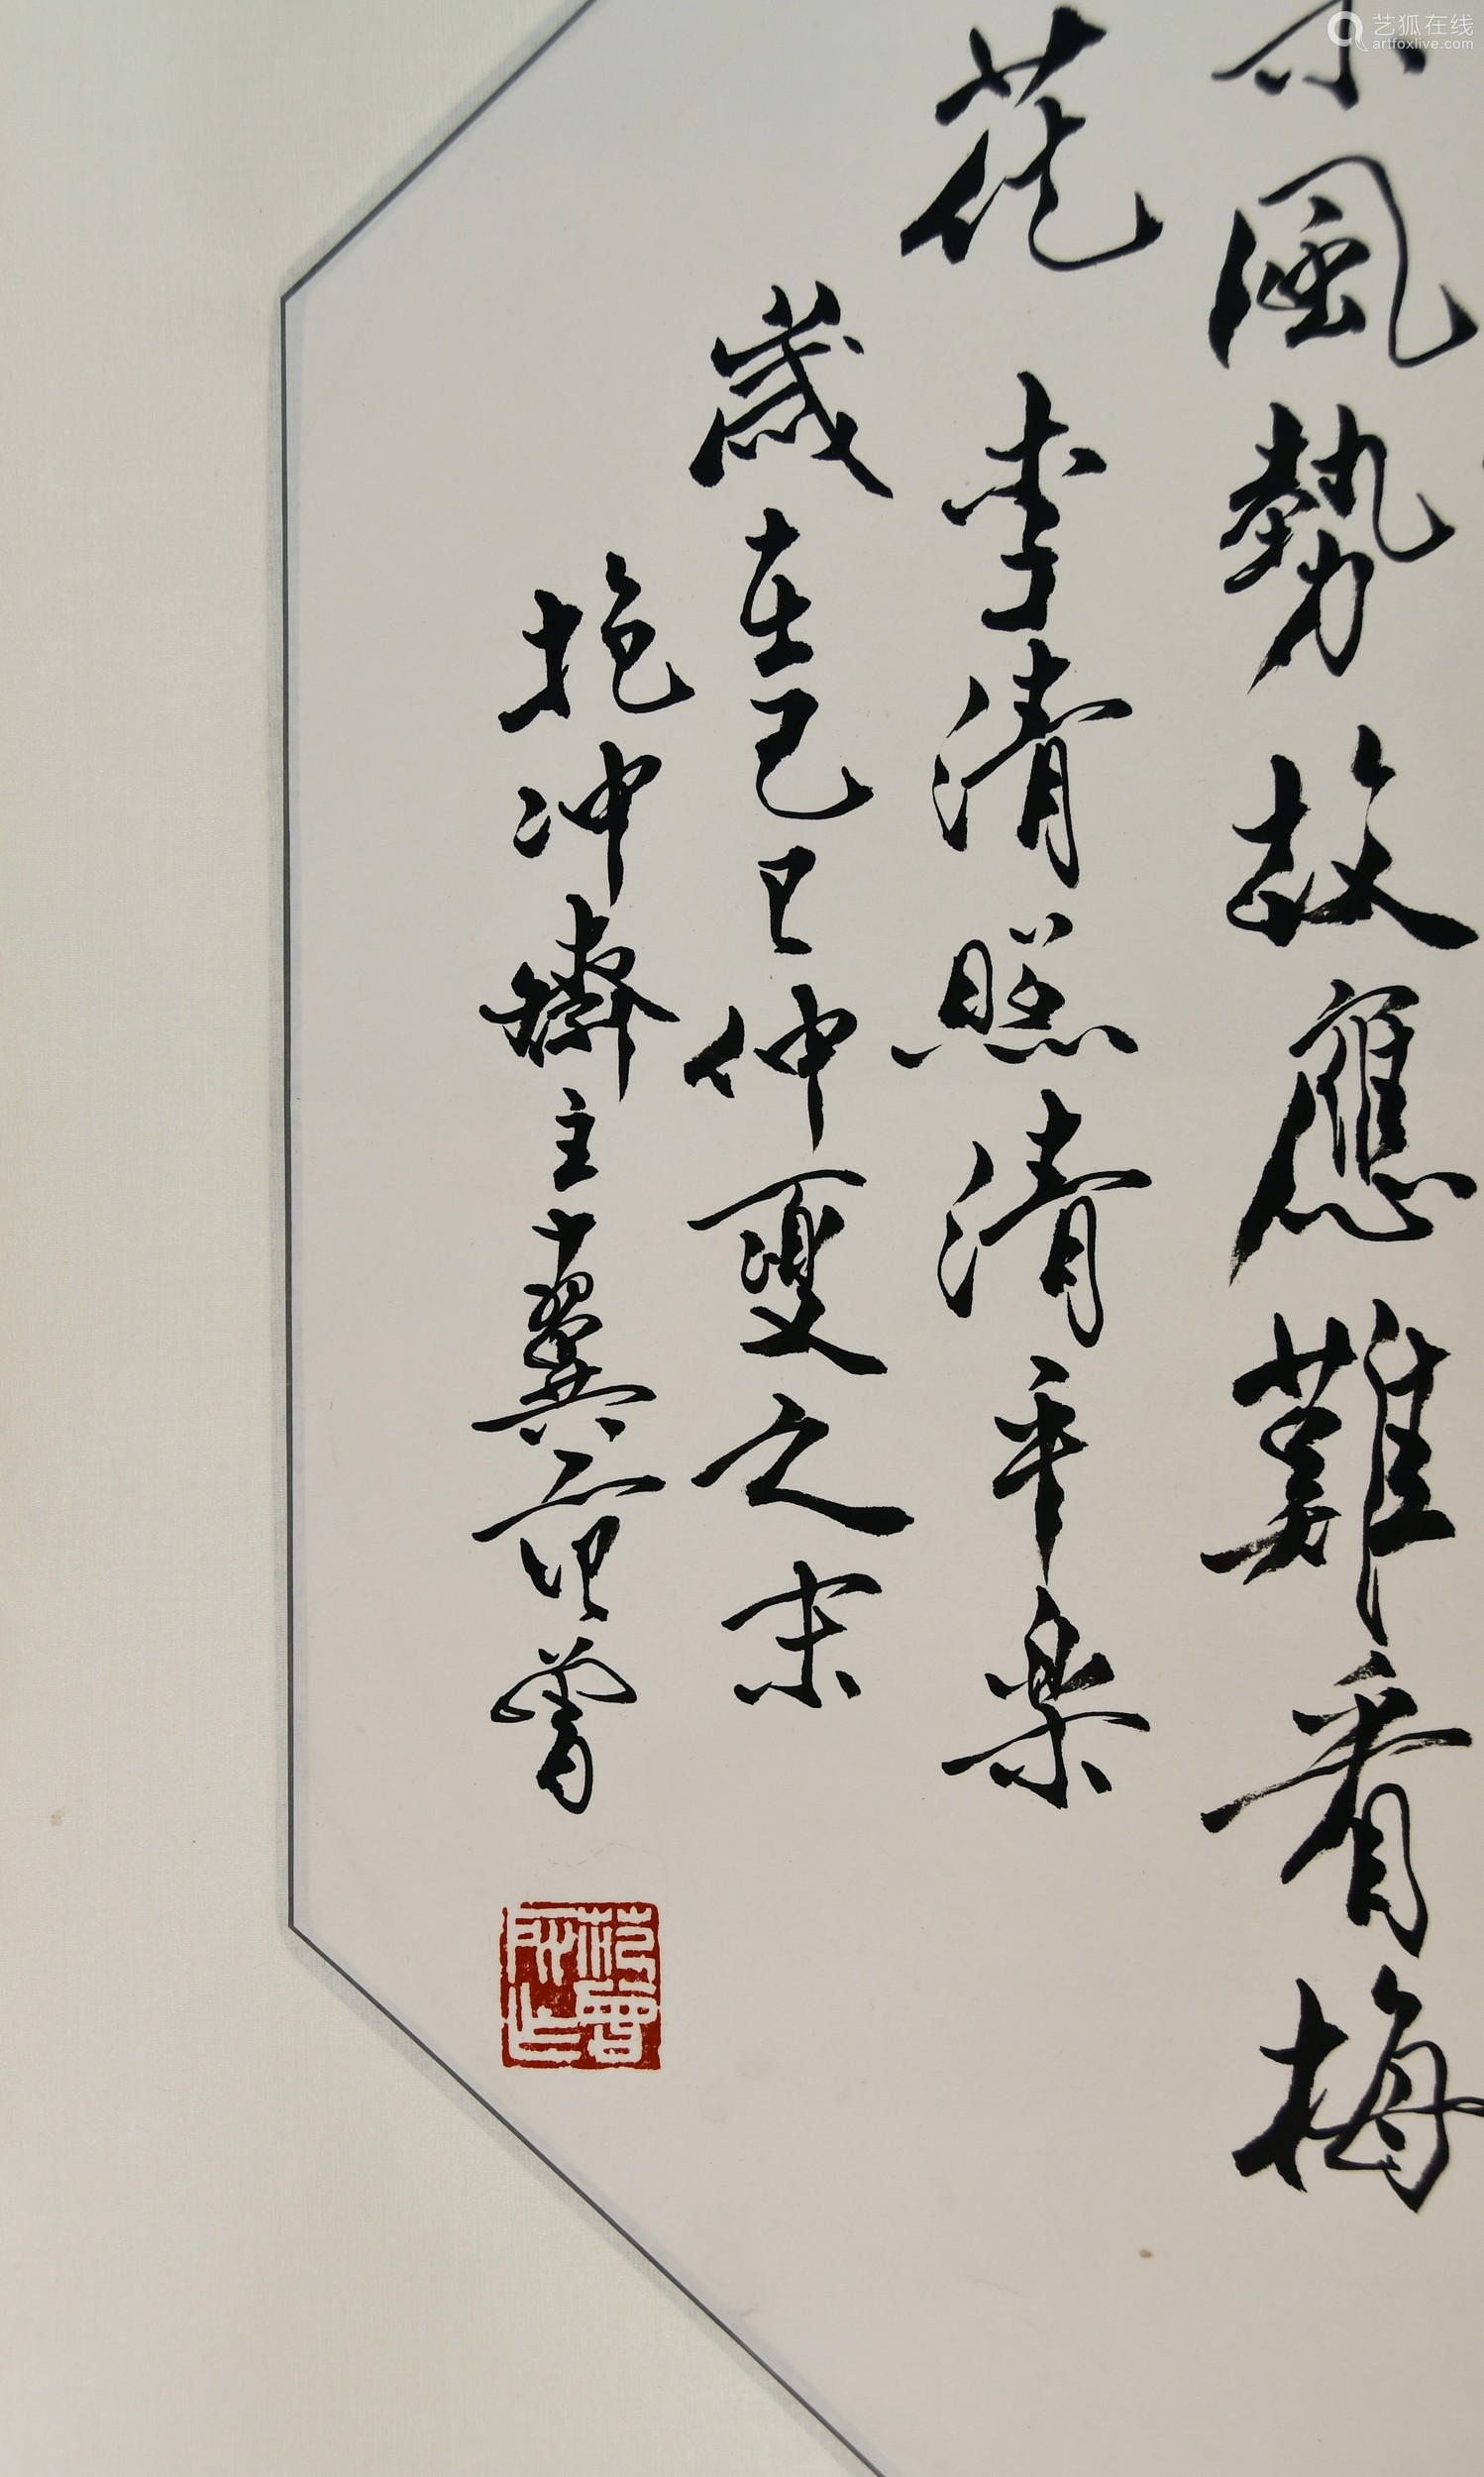 風勢故應難看梅
花 李清照清平樂
歲在己巳仲夏之末
抱冲齋主十翼范曾
艺狐在线
artfoxlive.com